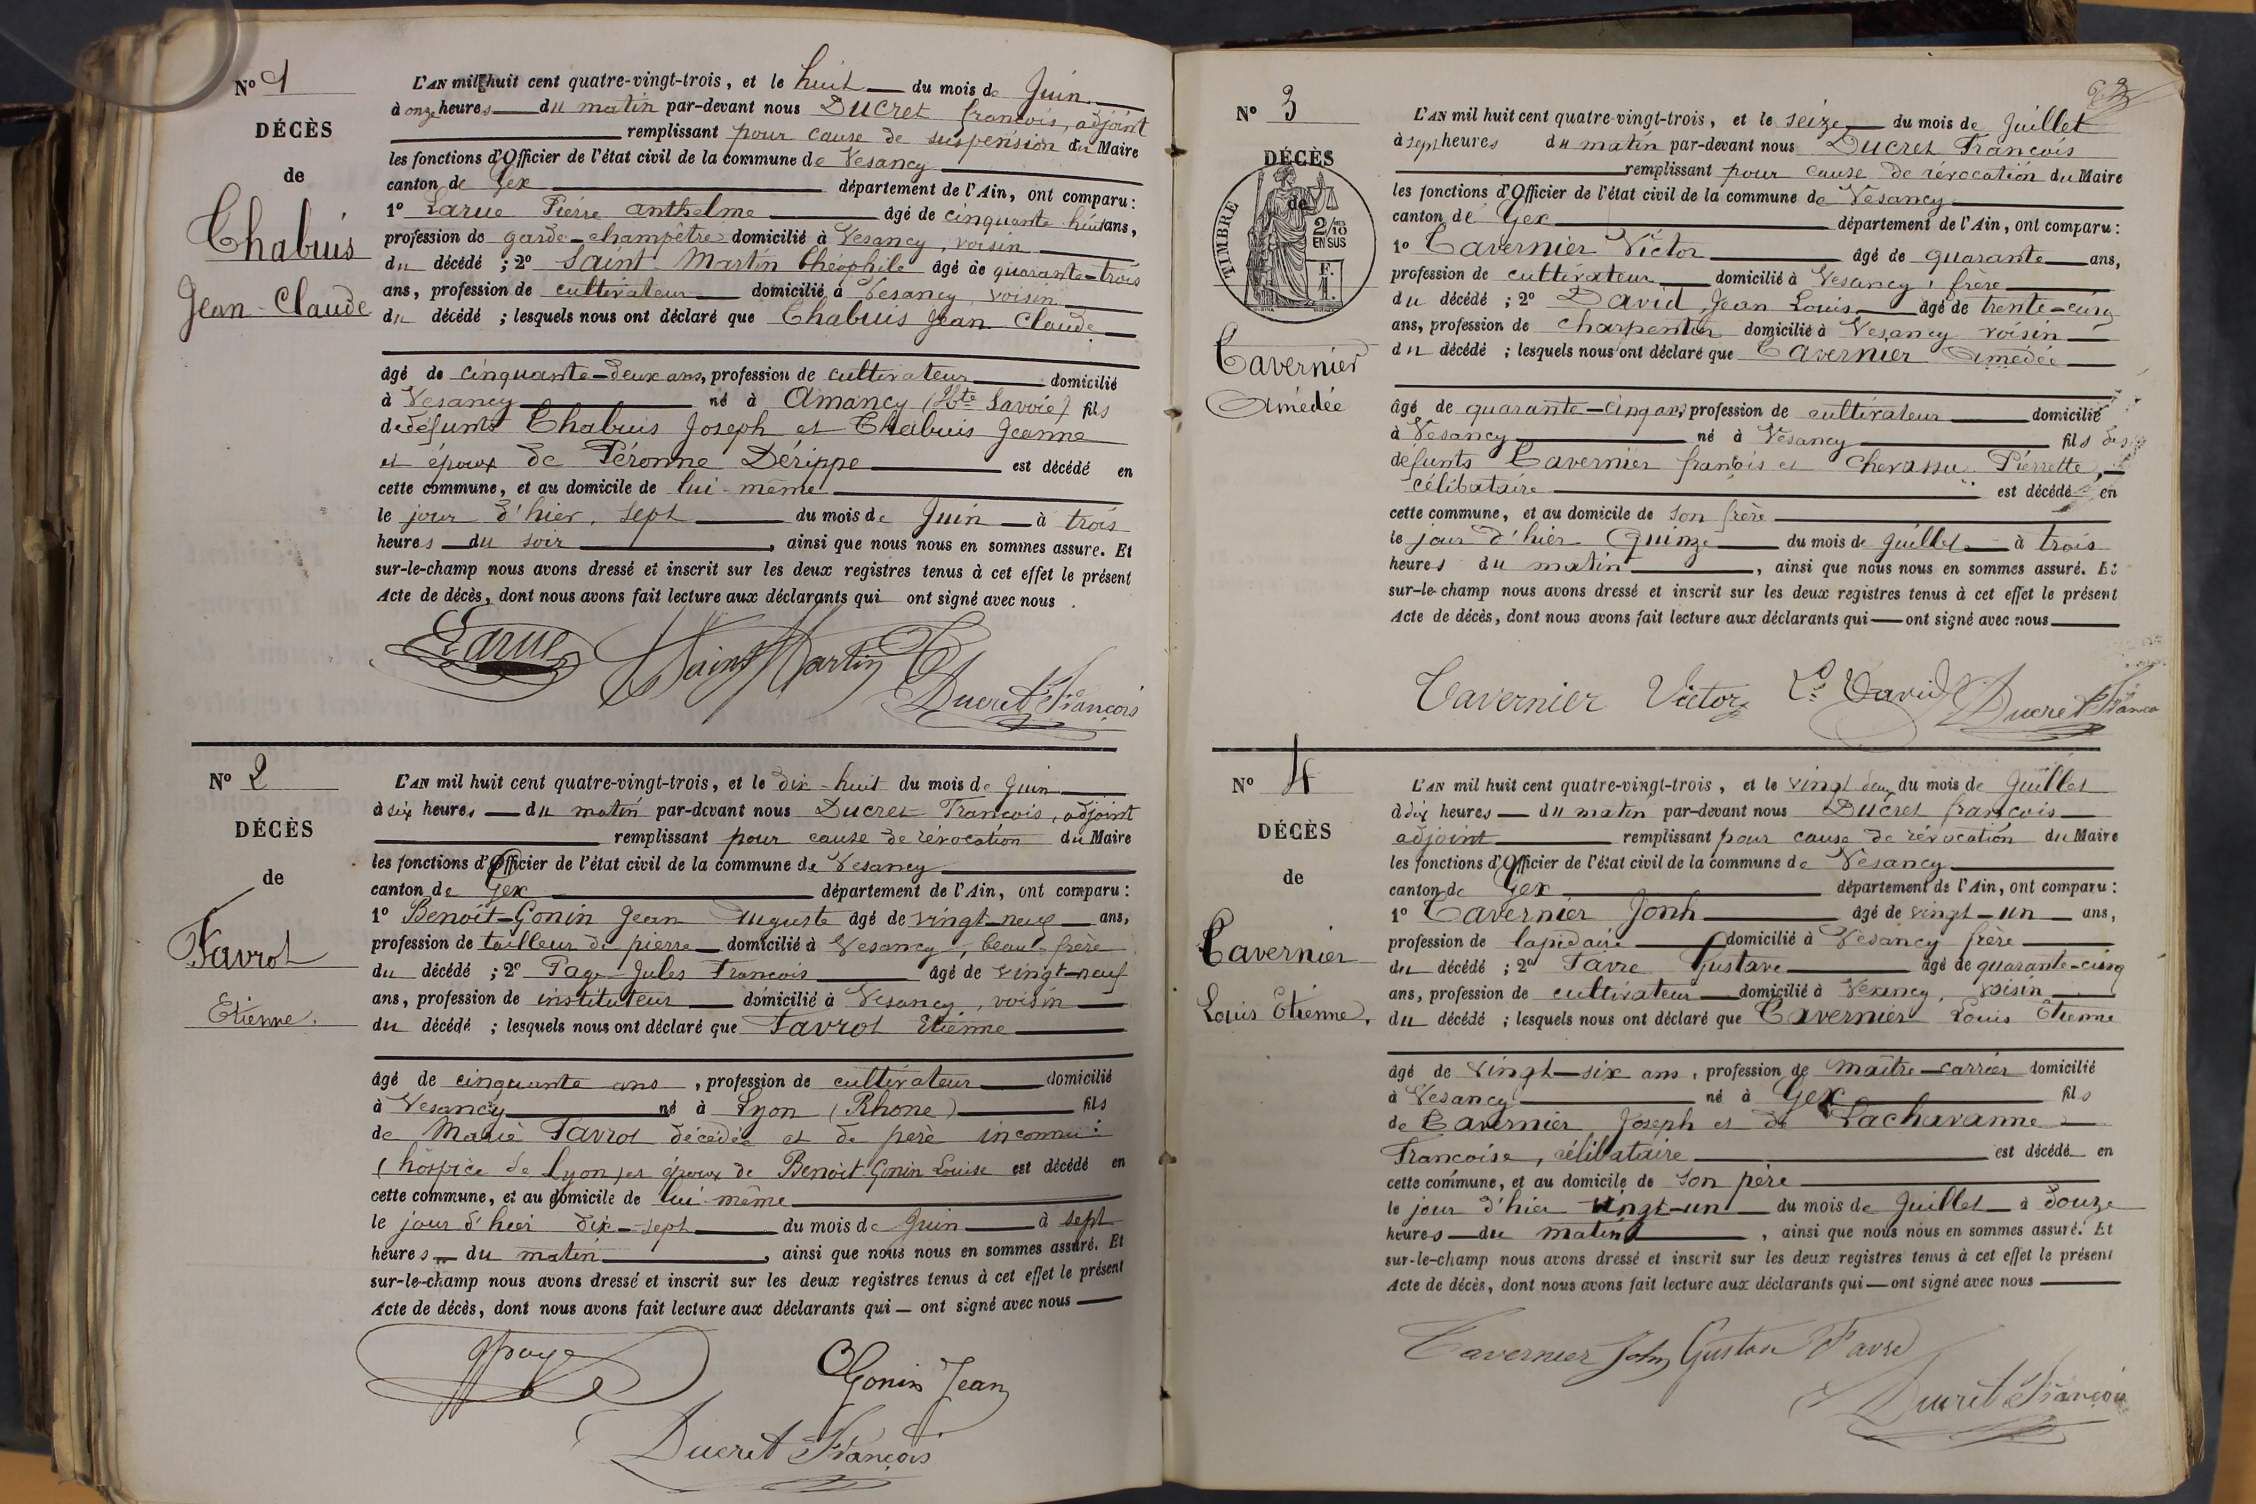 Nº 1
DÉCÈS
de
Chabuis
Jean-Claude
L'AN mil huit cent quatre-vingt-trois, et le huit du mois de Juin
à onze heures du matin par-devant nous Ducret François, adjoint
remplissant pour cause de suspension du Maire
les fonctions d'Officier de l'état civil de la commune de Vesancy
canton de Gex département de l'Ain, ont comparu :
1º Larue Pierre Anthelme âgé de cinquante-huit ans,
profession de garde-champêtre domicilié à Vesancy, voisin
du décédé ; 2º Saint-Martin Théophile âgé de quarante-trois
ans, profession de cultivateur domicilié à Vesancy, voisin
du décédé ; lesquels nous ont déclaré que Chabuis Jean Claude
âgé de cinquante-deux ans, profession de cultivateur domicilié
à Vesancy né à Amancy (Hte Savoie) fils
de défunts Chabuis Joseph et Chabuis Jeanne
et époux de Péronne Dérippe est décédé en
cette commune, et au domicile de lui-même
le jour d'hier, sept du mois de Juin à trois
heures du soir, ainsi que nous nous en sommes assuré. Et
sur-le-champ nous avons dressé et inscrit sur les deux registres tenus à cet effet le présent
Acte de décès, dont nous avons fait lecture aux déclarants qui ont signé avec nous.
Larue Saint Martin T Ducret François
Nº 2
DÉCÈS
de
Favrot
Etienne.
L'AN mil huit cent quatre-vingt-trois, et le dix-huit du mois de Juin
à six heures du matin par-devant nous Ducret François, adjoint
remplissant pour cause de révocation du Maire
les fonctions d'Officier de l'état civil de la commune de Vesancy
canton de Gex département de l'Ain, ont comparu :
1º Benoit-Gonin Jean Auguste âgé de vingt-neuf ans,
profession de tailleur de pierre domicilié à Vesancy, beau-frère
du décédé ; 2º Page Jules François âgé de vingt-neuf
ans, profession de instituteur domicilié à Vesancy, voisin
du décédé ; lesquels nous ont déclaré que Favrot Etienne
âgé de cinquante ans, profession de cultivateur domicilié
à Vesancy né à Lyon (Rhone) fils
de Marie Favrot décédée et de père inconnu
(hospice de Lyon) et époux de Benoit-Gonin Louise est décédé en
cette commune, et au domicile de lui-même
le jour d'hier dix-sept du mois de Juin à sept
heures du matin, ainsi que nous nous en sommes assuré. Et
sur-le-champ nous avons dressé et inscrit sur les deux registres tenus à cet effet le présent
Acte de décès, dont nous avons fait lecture aux déclarants qui ont signé avec nous
Gonin Jean
Ducret François
Nº 3
DÉCÈS
de
TIMBRE
2/10
EN SUS
F.
1.
Tavernier
Amédée
L'AN mil huit cent quatre-vingt-trois, et le seize du mois de Juillet
à sept heures du matin par-devant nous Ducret François
remplissant pour cause de révocation du Maire
les fonctions d'Officier de l'état civil de la commune de Vesancy
canton de Gex département de l'Ain, ont comparu :
1º Tavernier Victor âgé de quarante ans,
profession de cultivateur domicilié à Vesancy, frère
du décédé ; 2º David Jean Louis âgé de trente-cinq
ans, profession de charpentier domicilié à Vesancy voisin
du décédé ; lesquels nous ont déclaré que Tavernier Amédée
âgé de quarante-cinq ans, profession de cultivateur domicilié
à Vesancy né à Vesancy fils des
défunts Tavernier françois et Chevassu Pierrette,
célibataire est décédé en
cette commune, et au domicile de son frère
le jour d'hier Quinze du mois de Juillet à trois
heures du matin, ainsi que nous nous en sommes assuré. Et
sur-le-champ nous avons dressé et inscrit sur les deux registres tenus à cet effet le présent
Acte de décès, dont nous avons fait lecture aux déclarants qui ont signé avec nous
Tavernier Victor Ls David Ducret
Nº 4
DÉCÈS
de
Tavernier
Louis Etienne.
L'AN mil huit cent quatre-vingt-trois, et le vingt deux du mois de Juillet
à dix heures du matin par-devant nous Ducret françois
adjoint remplissant pour cause de révocation du Maire
les fonctions d'Officier de l'état civil de la commune de Vesancy
canton de Gex département de l'Ain, ont comparu :
1º Tavernier Jonh âgé de vingt-un ans,
profession de lapidaire domicilié à Vesancy frère
du décédé ; 2º Favre Gustave âgé de quarante-cinq
ans, profession de cultivateur domicilié à Vesancy, voisin
du décédé ; lesquels nous ont déclaré que Tavernier Louis Etienne
âgé de vingt-six ans, profession de maître-carrier domicilié
à Vesancy né à Gex fils
de Tavernier Joseph et de Lachavanne
Françoise, célibataire est décédé en
cette commune, et au domicile de son père
le jour d'hier vingt-un du mois de Juillet à douze
heures du matin, ainsi que nous nous en sommes assuré. Et
sur-le-champ nous avons dressé et inscrit sur les deux registres tenus à cet effet le présent
Acte de décès, dont nous avons fait lecture aux déclarants qui ont signé avec nous
Tavernier John Gustave Favre
Ducret François